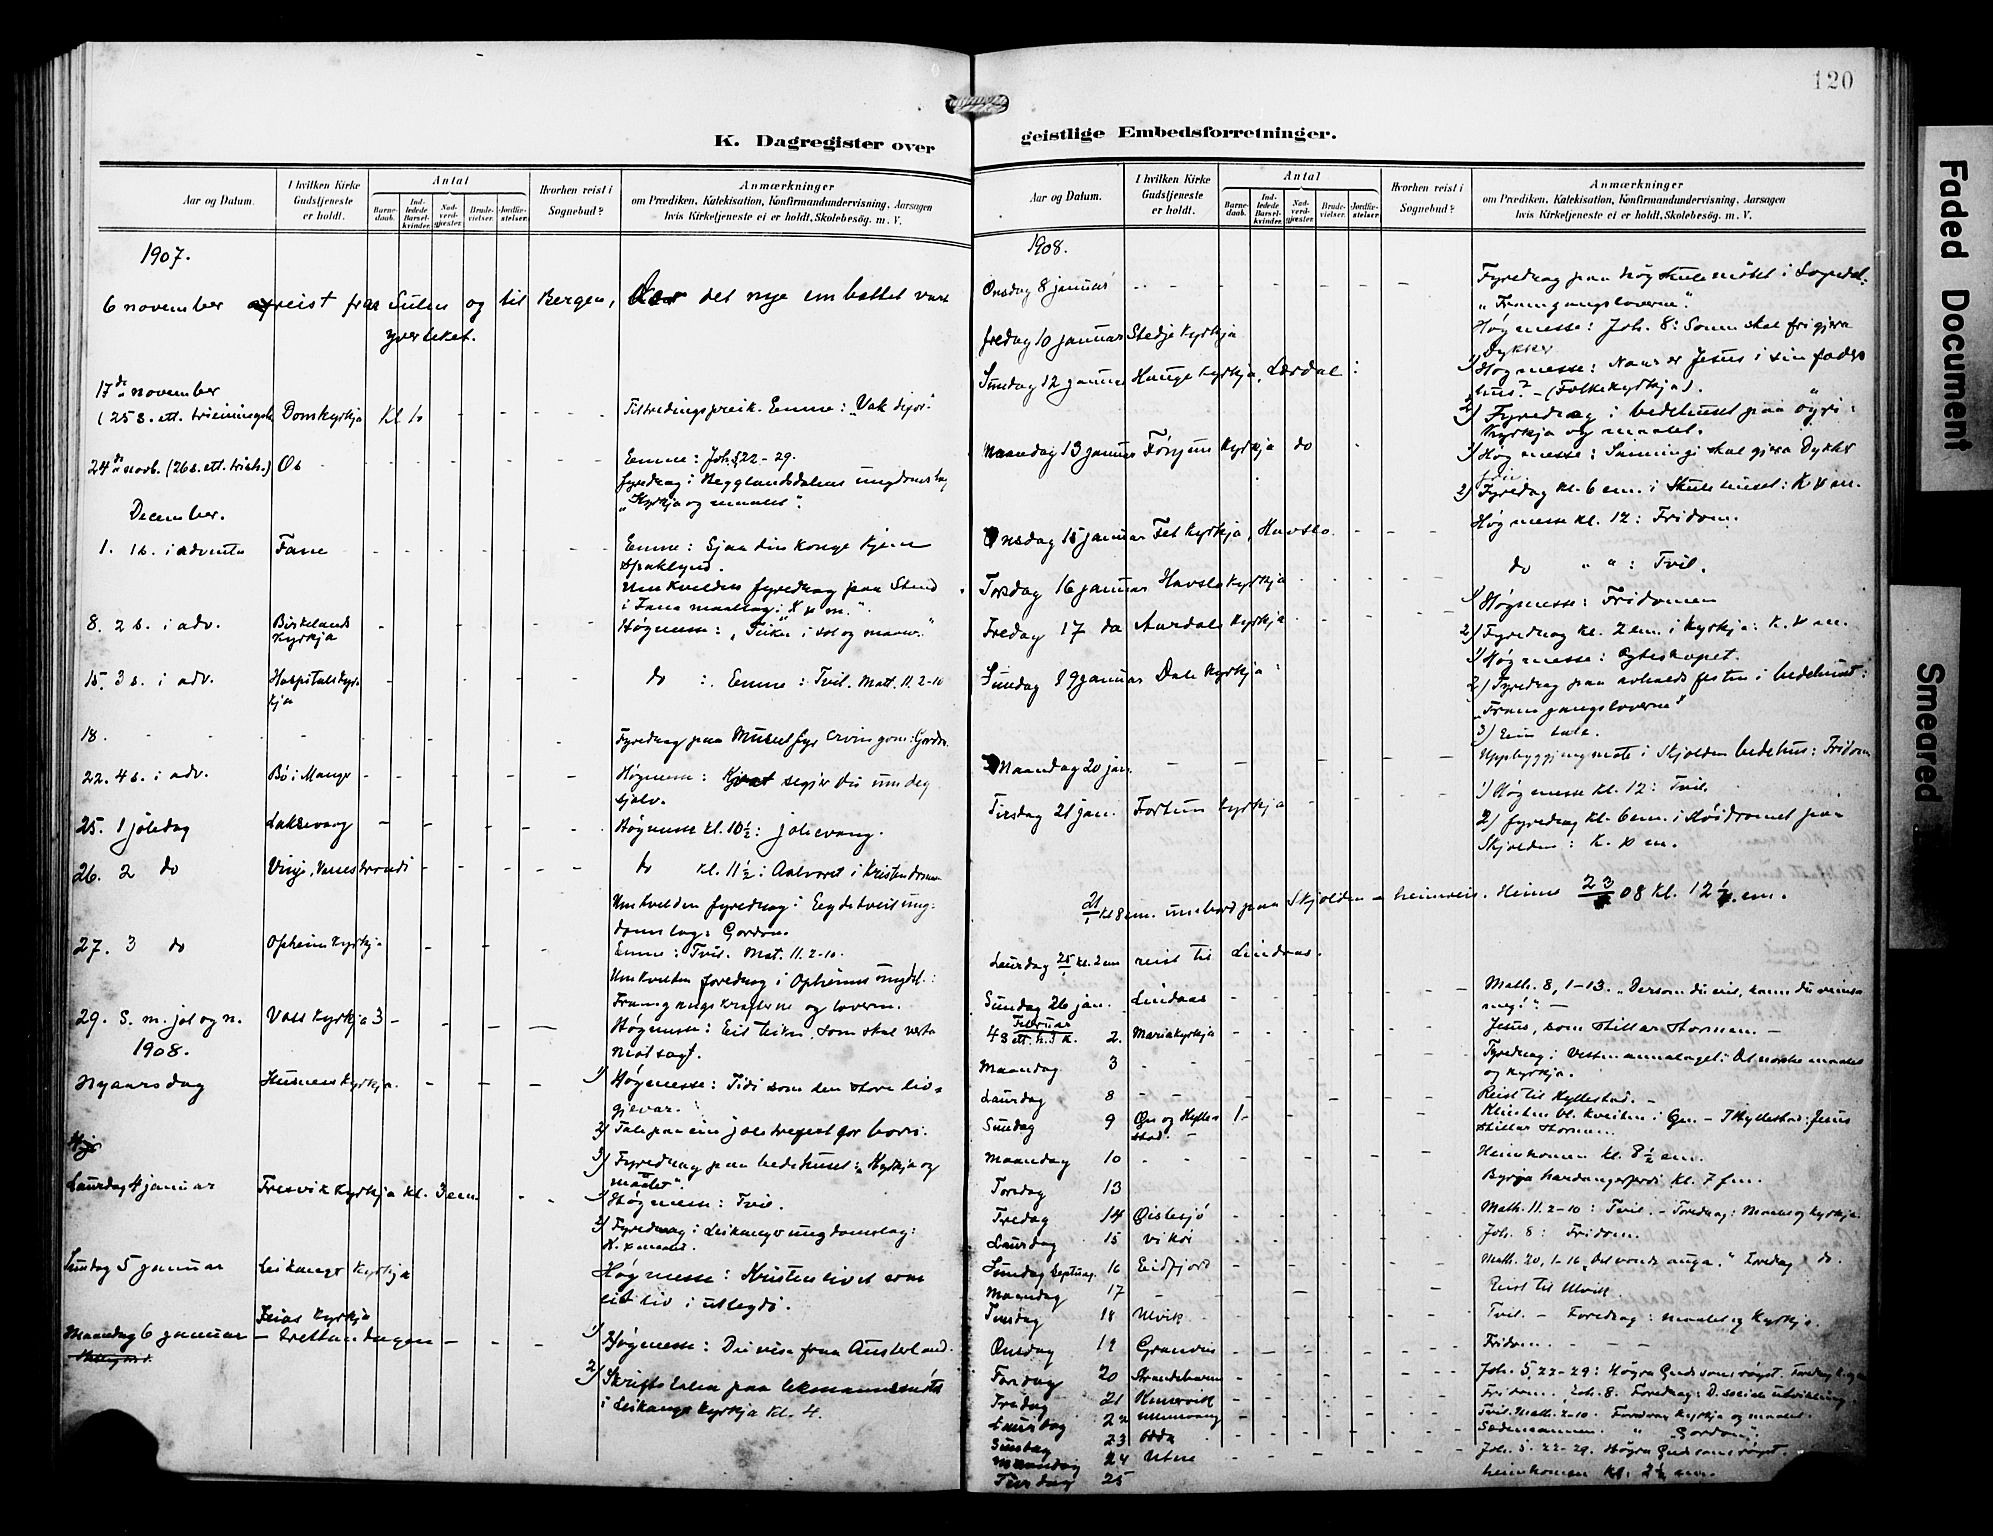 120
K. Dagregister over geistlige Embedsforretninger.
Aar og Datum.
I hvilken Kirke Gudstjeneste er holdt.
Antal
Barnedaab.
Indledede Barselkvinder.
Nadverdgjæster.
Brudevielser.
Jordfæstelser.
Hvorhen reist i Sognebud?
Anmærkninger
om Prædiken, Katekisation, Konfirmandundervisning, Aarsagen
hvis Kirketjeneste ei er holdt, Skolebesög. m. V.
1907.
6 november reist fraa Sulen og til Bergen, det nye embættet vart
yverteket.
17de november
(25 s. ett. trieiningsh. Domkyrkja Kl 10 - - - - Tiltredingspreik. Emne: „Vak
24de novb. (26 s. ett. trieh.) Os - - - - Emne: Joh 5, 22-29.
fyredrag i Hegglandsdalens ungdomslag
„Kyrkja og maalet".
December.
1. 1 s. i adventa Fane - - - - Emne: Sjaa din konge kjem
spaklynd.
Um kvelden fyredrag paa Stend
i Fana maallag: K p m."
8. 2 s. i adv. Birkelands kyrkja - - - - Høgmesse: „Teikn i sol og maane."
15. 3 s. i adv. Hospitalskyrkja - - - - do : Emne: Tvil. Matt. 11. 2-10
18. - - - - Fyredrag paa Museet fyr : Gordon
22. 4 s. i adv. Bø i Mange - - - - Høgmesse: Kvat segjer du um deg
sjølv.
25. 1 joledag Laksevaag - - - - Høgmesse kl. 10½: jolevang.
26. 2 do Vinje, Vossestrandi - - - - do kl. 11½: Aalvoret i Kristendomen
Um kvelden fyredrag i ungdomslag: Gordon.
27. 3 do Opheim kyrkja - - - Emne: Tvil. Mat. 11. 2-10.
Um kvelden foredrag i Opheims ungdl.:
Framgangskrafterne og loverne.
29. S. m. jol og n. Voss kyrkja 3 - - - Høgmesse: Eit teikn, som skal verta
motsagt.
1908.
Nyaarsdag Husnes kyrkja. - - - 1) Høgmesse: Tidi som den store livgjevar.
2) Tale paa ein joletrefest for born.
3) Fyredrag paa bedehuset: „Kyrkja og
maalet".
Laurdag 4 januar Fresvik kyrkja kl. 3 em. - - 1) Høgmesse: Tvil.
2) Fyredrag i Leikanger ungdomslag:
K. p maalet.
Sundag 5 januar Leikanger kyrkja Høgmesse: Kristenlivet som
eit liv i utlegd.
Maandag 6 januar - Trettandagen - - - 1) Høgmesse: Dei vise fraa Austerland.
2) Skriftetalen paa lekmannsmøte
i Leikanger kyrkja kl. 4.
Aar og Datum.
I hvilken Kirke Gudstjeneste er holdt.
Antal
Barnedaab.
Indledede Barselkvinder.
Nadverdgjæster.
Brudevielser.
Jordfæstelser.
Hvorhen reist i Sognebud?
Anmærkninger
om Prædiken, Katekisation, Konfirmandundervisning, Aarsagen
hvis Kirketjeneste ei er holdt, Skolebesög. m. V.
1908.
Onsdag 8 januar - - - - Fyredrag paa høgskulemøtet i Sogndal:
„Framgangsloverne".
fredag 10 januar Stedje kyrkja Høgmesse: Joh. 8: Sonen skal frigjera
Dykker
Sundag 12 januar Hauge kyrkja, Lærdal : 1) Høgmesse: Naar er Jesus i sin faders
hus? - (Folkekyrkja).
2) Fyredrag i bedehuset paa øyri:
Kyrkja og maalet.
Maandag 13 januar kyrkja do - 1) Høgmesse: Sanningi skal gjera Dykker
2) Fyredrag kl. 6 em. i Skulehuset: K p m.
Onsdag 15 januar Fet kyrkja, Havslo - - - Høgmesse kl. 12: Fridom.
Torsdag 16 januar Havslo kyrkja - - - do " " : Tvil.
Fredag 17 do Aardals kyrkja - - - 1) Høgmesse: Fridomen
2) Fyredrag kl. 2 em. i kyrkja: K. p m.
Sundag 19 januar Dale kyrkja 1) Høgmesse: Egteskapet.
2) Fyredrag paa avhaldsfesten i bedehuset:
„Framgangsloverne"
3) Ein tale.
Maandag 20 jan. - - - - Uppbyggjingmøte i Skjolden bedehus: Fridom
Tirsdag 21 jan. Fortun kyrkja - - - 1) Høgmesse kl. 12: Tvil.
2) fyredrag kl. 6 em. i paa
Skjolden: K. p m.
21/1 kl 8 em. umbord paa Skjolden - heimveis. Heime 23/1 08 kl. 12½ em.
Laurdag 25/1 kl. 2 em reist til Lindaas.
Sundag 26 jan. Lindaas - - - - Math. 8, 1-13. „Dersom du vil, kann du reinsa
meg!" -
Februar
4 s ett. h. 3 k. 2. Mariakyrkja - - - - Jesus, som stillar stormen. -
Maandag 3 - - - - Fyredrag i Vestmannalaget: Det norske maalet
og kyrkja.
Laurdag 8 - - - - Reist til Hyllestad. -
Sundag 9 Øn og Hyllestad. 1 - - - Klinten bl. kveiten i Øn. - I Hyllestad: Jesus
stillar stormen.
Maandag 10 - - - - Heimkomen kl. 8½ em.
Torsdag 13 Byrja hardangerferdi kl. 7 fm.
Fredag 14 Øistesjø - - - - Math. 11. 2-10: Tvil. - Foredrag: Maalet og kyrkja.
Laurdag 15 Vikøi - - - - Joh. 8: Fridom.
Sundag Septuag. 16 Eidfjord - - - - Math. 20, 1-16, „Det vonde auga." Foredrag do.
Maandag 17 - - - - Reist til Ulvik.
Tirsdag 18 Ulvik - - - - Tvil. - Foredrag: Maalet og Kyrkja.
Onsdag 19 Granvin - - - - Fridom. - - -
Torsdag 20 Strandebarm - - - - Joh. 5, 22-29: Høyra Guds sons røyst.
Fredag 21 - - - - Fridom. Joh. 8. Foredrag: D. sociale utvikling.
Laurdag 22 Ullensvang - - - - Tvil. Math. 2-10. Foredrag Kyrkja og maalet.
Sundag 23 Odda - - - - Sædemannen. " „Gordon".
Maandag 24 Utne - - - - Joh. 5. 22-29. Høyra Guds sons røyst.
Tirsdag 25 heimkomen kl. 2½ em.
Faded Document
Smeared